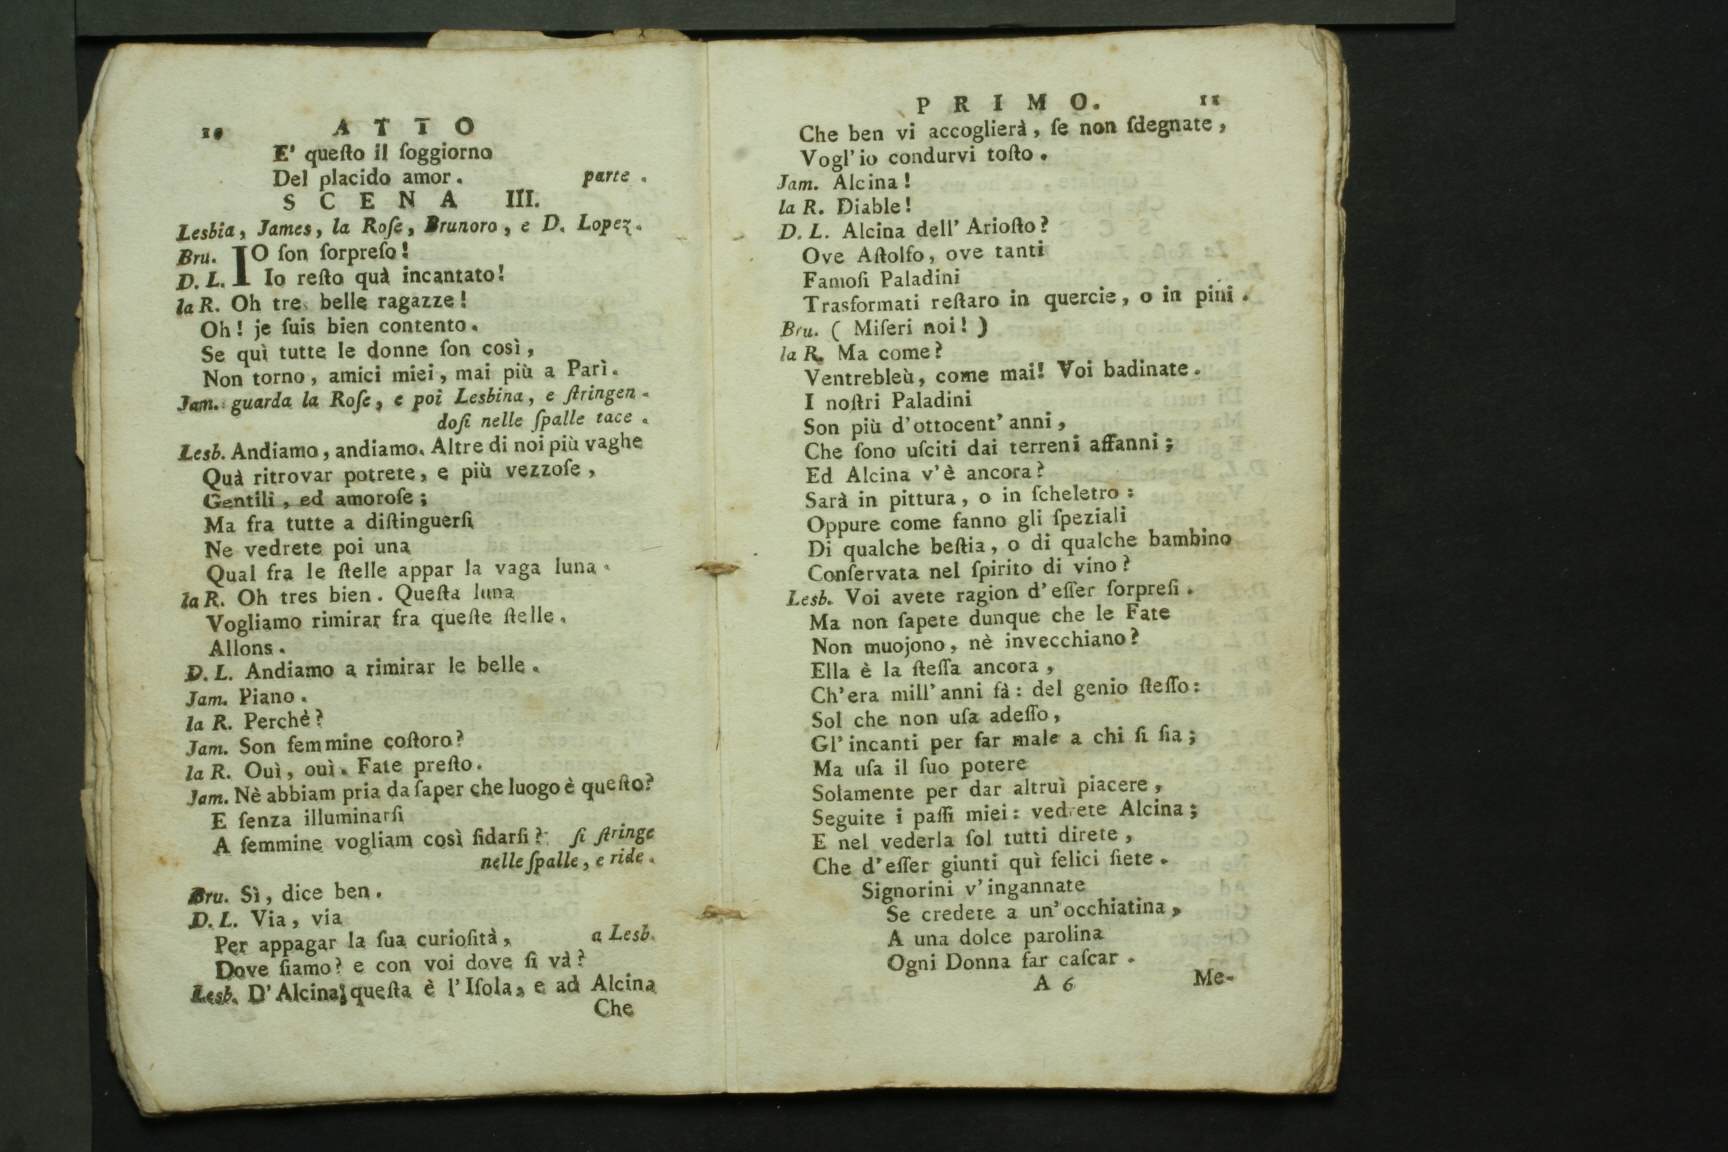 10 ATTO
E' queſto il ſoggiorno
Del placido amor. parte.
SCENA III.
Lesbia, James, la Roſe, Brunoro, e D. Lopez.
Bru. IO ſon ſorpreſo!
D. L. Io reſto quà incantato!
la R. Oh tre belle ragazze!
Oh! je ſuis bien contento.
Se quì tutte le donne ſon così,
Non torno, amici miei, mai più a Parì.
Jam. guarda la Roſe, e poi Lesbina, e ſtringen-
doſi nelle ſpalle tace.
Lesb. Andiamo, andiamo. Altre di noi più vaghe
Quà ritrovar potrete, e più vezzoſe,
Gentili, ed amoroſe;
Ma fra tutte a diſtinguerſi
Ne vedrete poi una
Qual fra le ſtelle appar la vaga luna.
la R. Oh tres bien. Queſta luna
Vogliamo rimirar fra queſte ſtelle.
Allons.
D. L. Andiamo a rimirar le belle.
Jam. Piano.
la R. Perchè?
Jam. Son femmine coſtoro?
la R. Ouì, ouì. Fate preſto.
Jam. Nè abbiam pria da ſaper che luogo è queſto?
E ſenza illuminarſi
A femmine vogliam così fidarſi? ſi ſtringe
nelle ſpalle, e ride.
Bru. Sì, dice ben.
D. L. Via, via
Per appagar la ſua curioſità, a Lesb.
Dove ſiamo? e con voi dove ſi và?
Lesb. D'Alcina queſta è l'Iſola, e ad Alcina
Che
PRIMO. 11
Che ben vi accoglierà, ſe non ſdegnate,
Vogl'io condurvi toſto.
Jam. Alcina!
la R. Diable!
D. L. Alcina dell' Arioſto?
Ove Aſtolfo, ove tanti
Famoſi Paladini
Trasformati reſtaro in quercie, o in pini.
Bru. ( Miſeri noi! )
la R. Ma come?
Ventrebleù, come mai! Voi badinate.
I noſtri Paladini
Son più d'ottocent' anni,
Che ſono uſciti dai terreni affanni;
Ed Alcina v'è ancora?
Sarà in pittura, o in ſcheletro:
Oppure come fanno gli ſpeziali
Di qualche beſtia, o di qualche bambino
Conſervata nel ſpirito di vino?
Lesb. Voi avete ragion d'eſſer ſorpreſi.
Ma non ſapete dunque che le Fate
Non muojono, nè invecchiano?
Ella è la ſteſſa ancora,
Ch'era mill'anni fà: del genio ſteſſo:
Sol che non uſa adeſſo,
Gl'incanti per far male a chi ſi ſia;
Ma uſa il ſuo potere
Solamente per dar altruì piacere,
Seguite i paſſi miei: vedrete Alcina;
E nel vederla ſol tutti direte,
Che d'eſſer giunti quì felici ſiete.
Signorini v'ingannate
Se credete a un'occhiatina,
A una dolce parolina
Ogni Donna far caſcar.
A 6 Me-